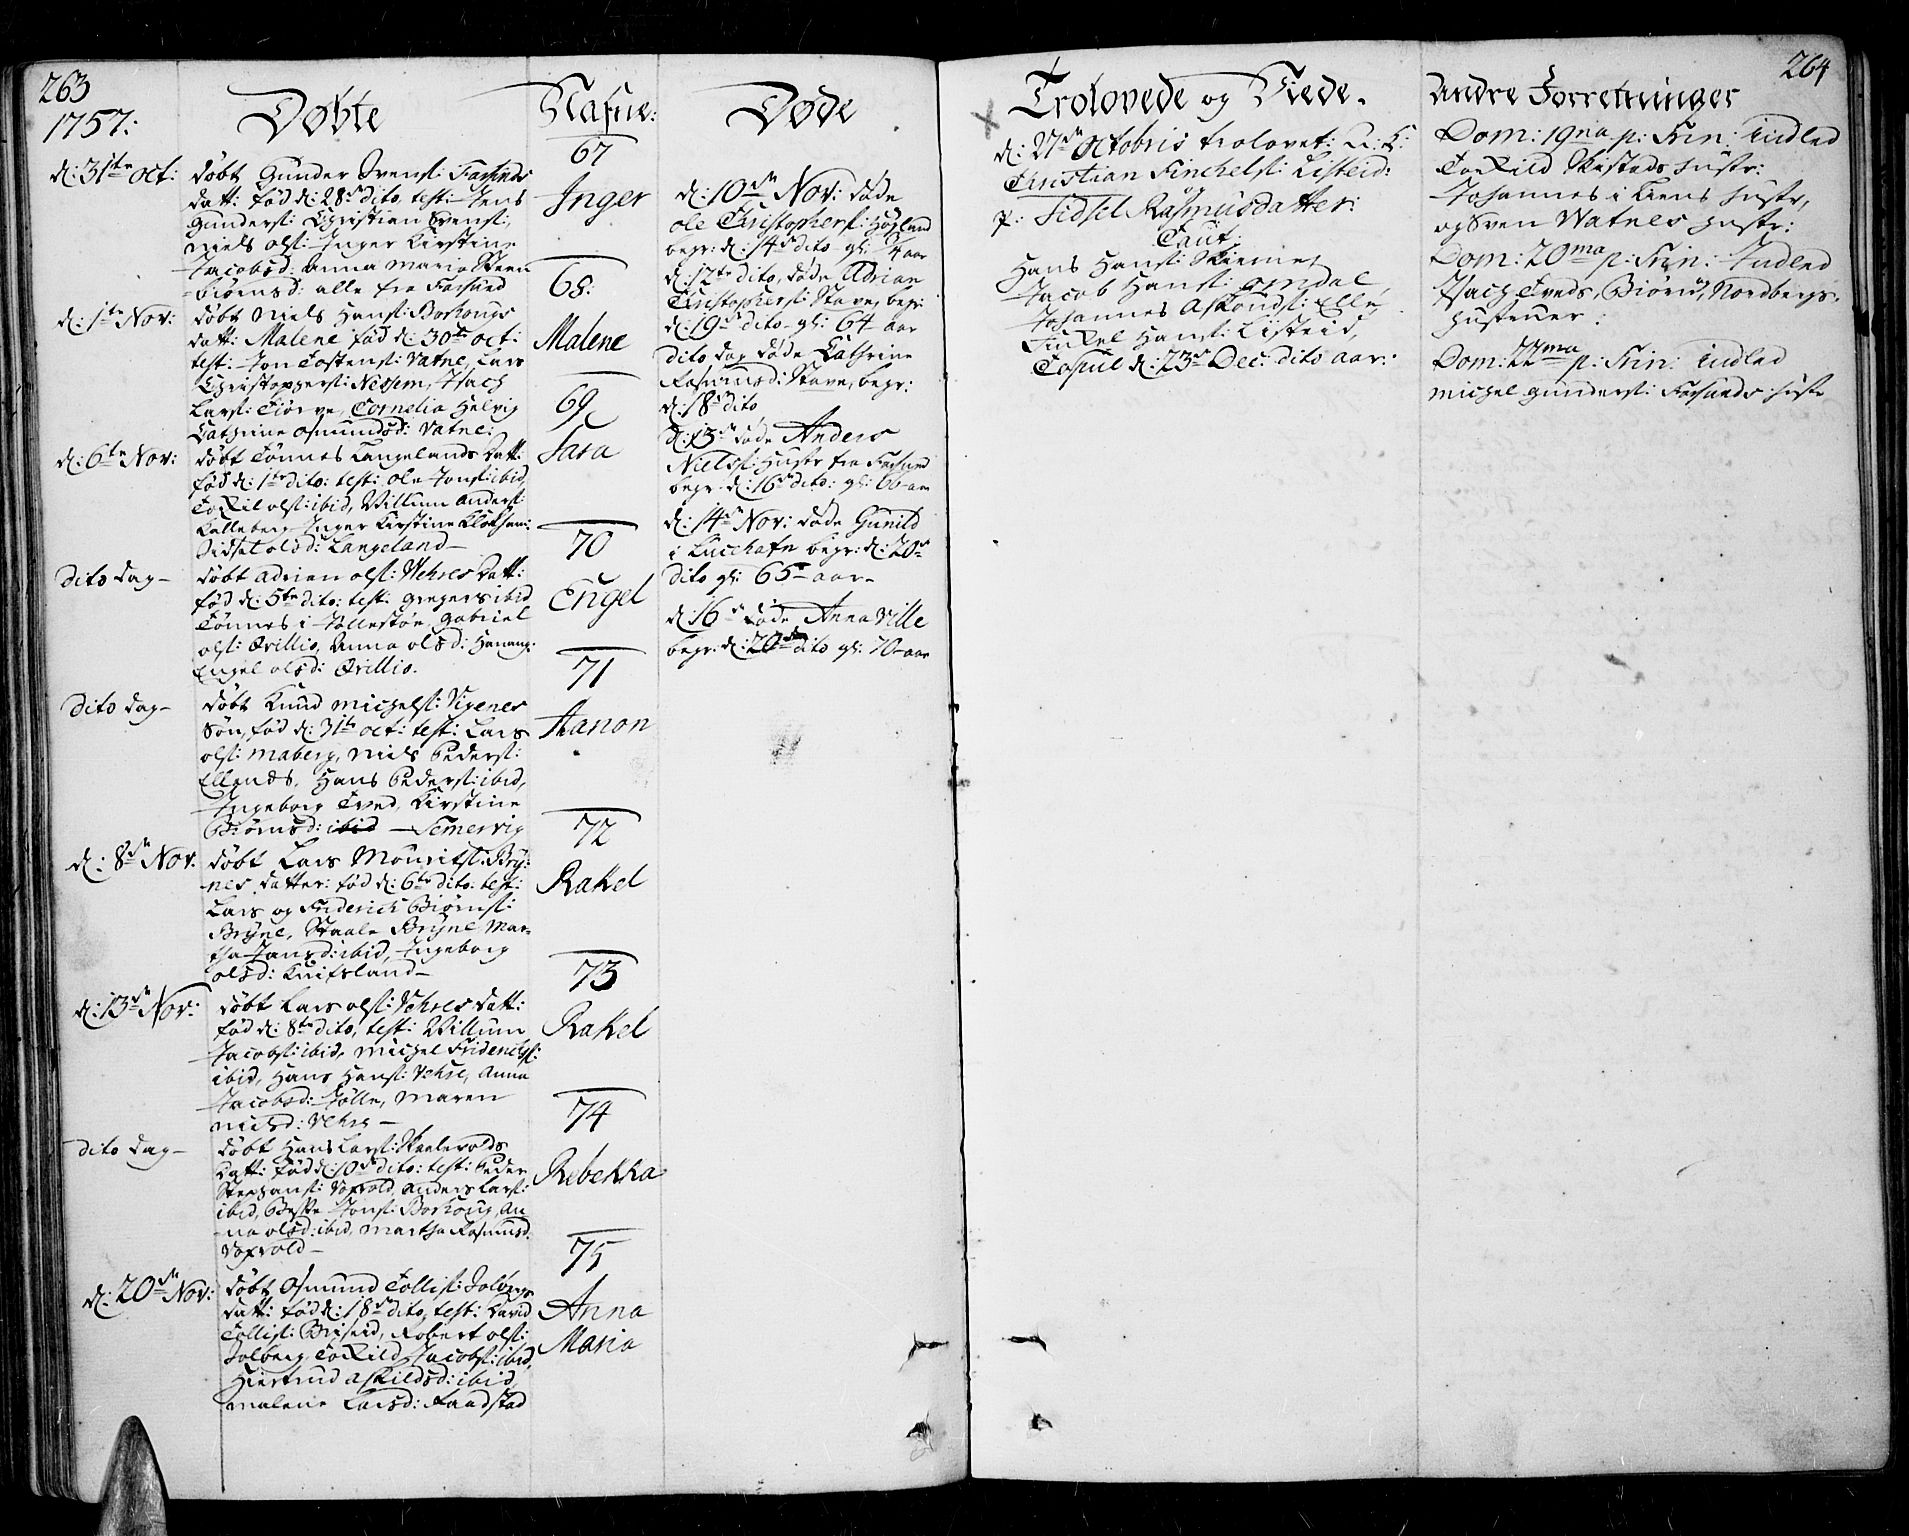 263
1757:
Døbte
d: 31te Oct:
døbt Gunder Svens: Farsunds
datt: fød d: 28de dito, test: Jens
Gunders: Christian Svens:,
Niels Ols: Inger Kirstine
Jacobsd: Anna Maria Steen
biørnsd: alle fra Farsund
d: 1te Nov:
døbt Niels Hans: Borhougs
datt: Malene fød d: 30te Oct:
test: Jon Tostens: Vatne, Lars
Christophers: Nessem, Isach
Lars: Tiørve, Cornelia Helvig
Cathrine Osmundsd: Vatne:
d: 6te Nov:
døbt Tønnes Langelands datt:
fød d: 1te dito: test: Ole Jons: ibid,
Torkil Ols: ibid, Willum Anders:
Kalleberg Inger Kirstine
Sidsel Olsd: Langeland
dito dag
døbt Adrian Ols: Vehres datt:
fød d: 5te dito: test: Gregers ibid
Tønnes i Jøllestøe, Gabriel
Ols: Ørillis, Anna Olsd: Hanang
Engel Olsd: Ørillis.
dito dag
døbt Knud Michels: Vigenes
Søn, fød d: 31te Oct: test: Lars
Ols: Maberg, Niels Peders:
Ellenæs, Hans Peders: ibid,
Ingeborg Tved, Kirstine
Biørnsd: ibid Semervig
d: 8de Nov:
døbt Lars Mourits: Bry:
nes datter: fød d: 6te dito: test:
Lars og Friderich Biørns:
Bryne, Staale Bryne, Mar-
tha Jansd: ibid, Ingeborg
Olsd: Knifsland
d: 13de Nov:
døbt Lars Ols: Vehres datt:
fød d: 8te dito, test: Willum
Jacobs: ibid, Michel Friderichs:
ibid, Hans Hans: Vehre, Anna
Jacobsd: Jølle, Maren
Nilsd: Vehre
dito dag
døbt Hans Lars: Skeelvolds
datt: fød d: 10de dito: test: Peder
Stephans: Voxvold, Anders Lars:
ibid, Jons: Borhoug, An-
na Olsd: ibid, Martha Rasmusd:
Voxvold
d: 20de Nov:
døbt Osmund Tollis: Jolbergs
datt: fød d: 18de dito, test: David
Tollis: Briseid, Robert Ols:
Jolberg, Torkild Jacobs: ibid,
Giertrud Askildsd: ibid
Malene Larsd: Faadstad
Nafne:
67
Inger
68:
Malene
69
Sara
70
Engel
71
Aanon
72
Rakel
73
Rakel
74
Rebekka
75
Anna
Maria
Døde
d: 10de Nov: døde
Ole Christophers: Høyland
begr: d: 14de dito gl: 74 aar
d: 12te dito, døde Adrian
Christophers: Stave, begr:
d: 19de dito gl: 64 aar
dito dag døde Cathrine
Rasmusd: Stave, begr:
d: 18de dito
d: 13de døde Anders
Niels: Hustr fra Farsund
begr: d: 16de dito: gl: 66 aar
d: 14de Nov: døde Gunild
i Lucehafn begr: d: 20de
dito gl: 65 aar
d: 16de døde Anna Ville
begr: d: 20de dito gl: 70 aar
264
Trolovede og Viede.
d: 27de Octobris trolovet: U: K:
Christian Finchels: Listeid:
P: Sidsel Rasmusdatter:
Caut:
Hans Hans: Skierne,
Jacob Hans: Omdal,
Johannes Askouds: Elle,
Finkel Hans: Listeid,
Copul d: 23de Dec: dito aar:
Andre Forretninger
Dom: 19na p: Trin: Indled
Torkild Skistads Hustr:
Johannes i Liens Hustr,
og Sven Vatnes Hustr:
Dom: 20ma p: Trin: Indled
Isach Tveds, Biørn Nordbergs,
Hustruer:
Dom: 22ma p: Trin: Indled
Michel Gunders: Farsunds Hustr